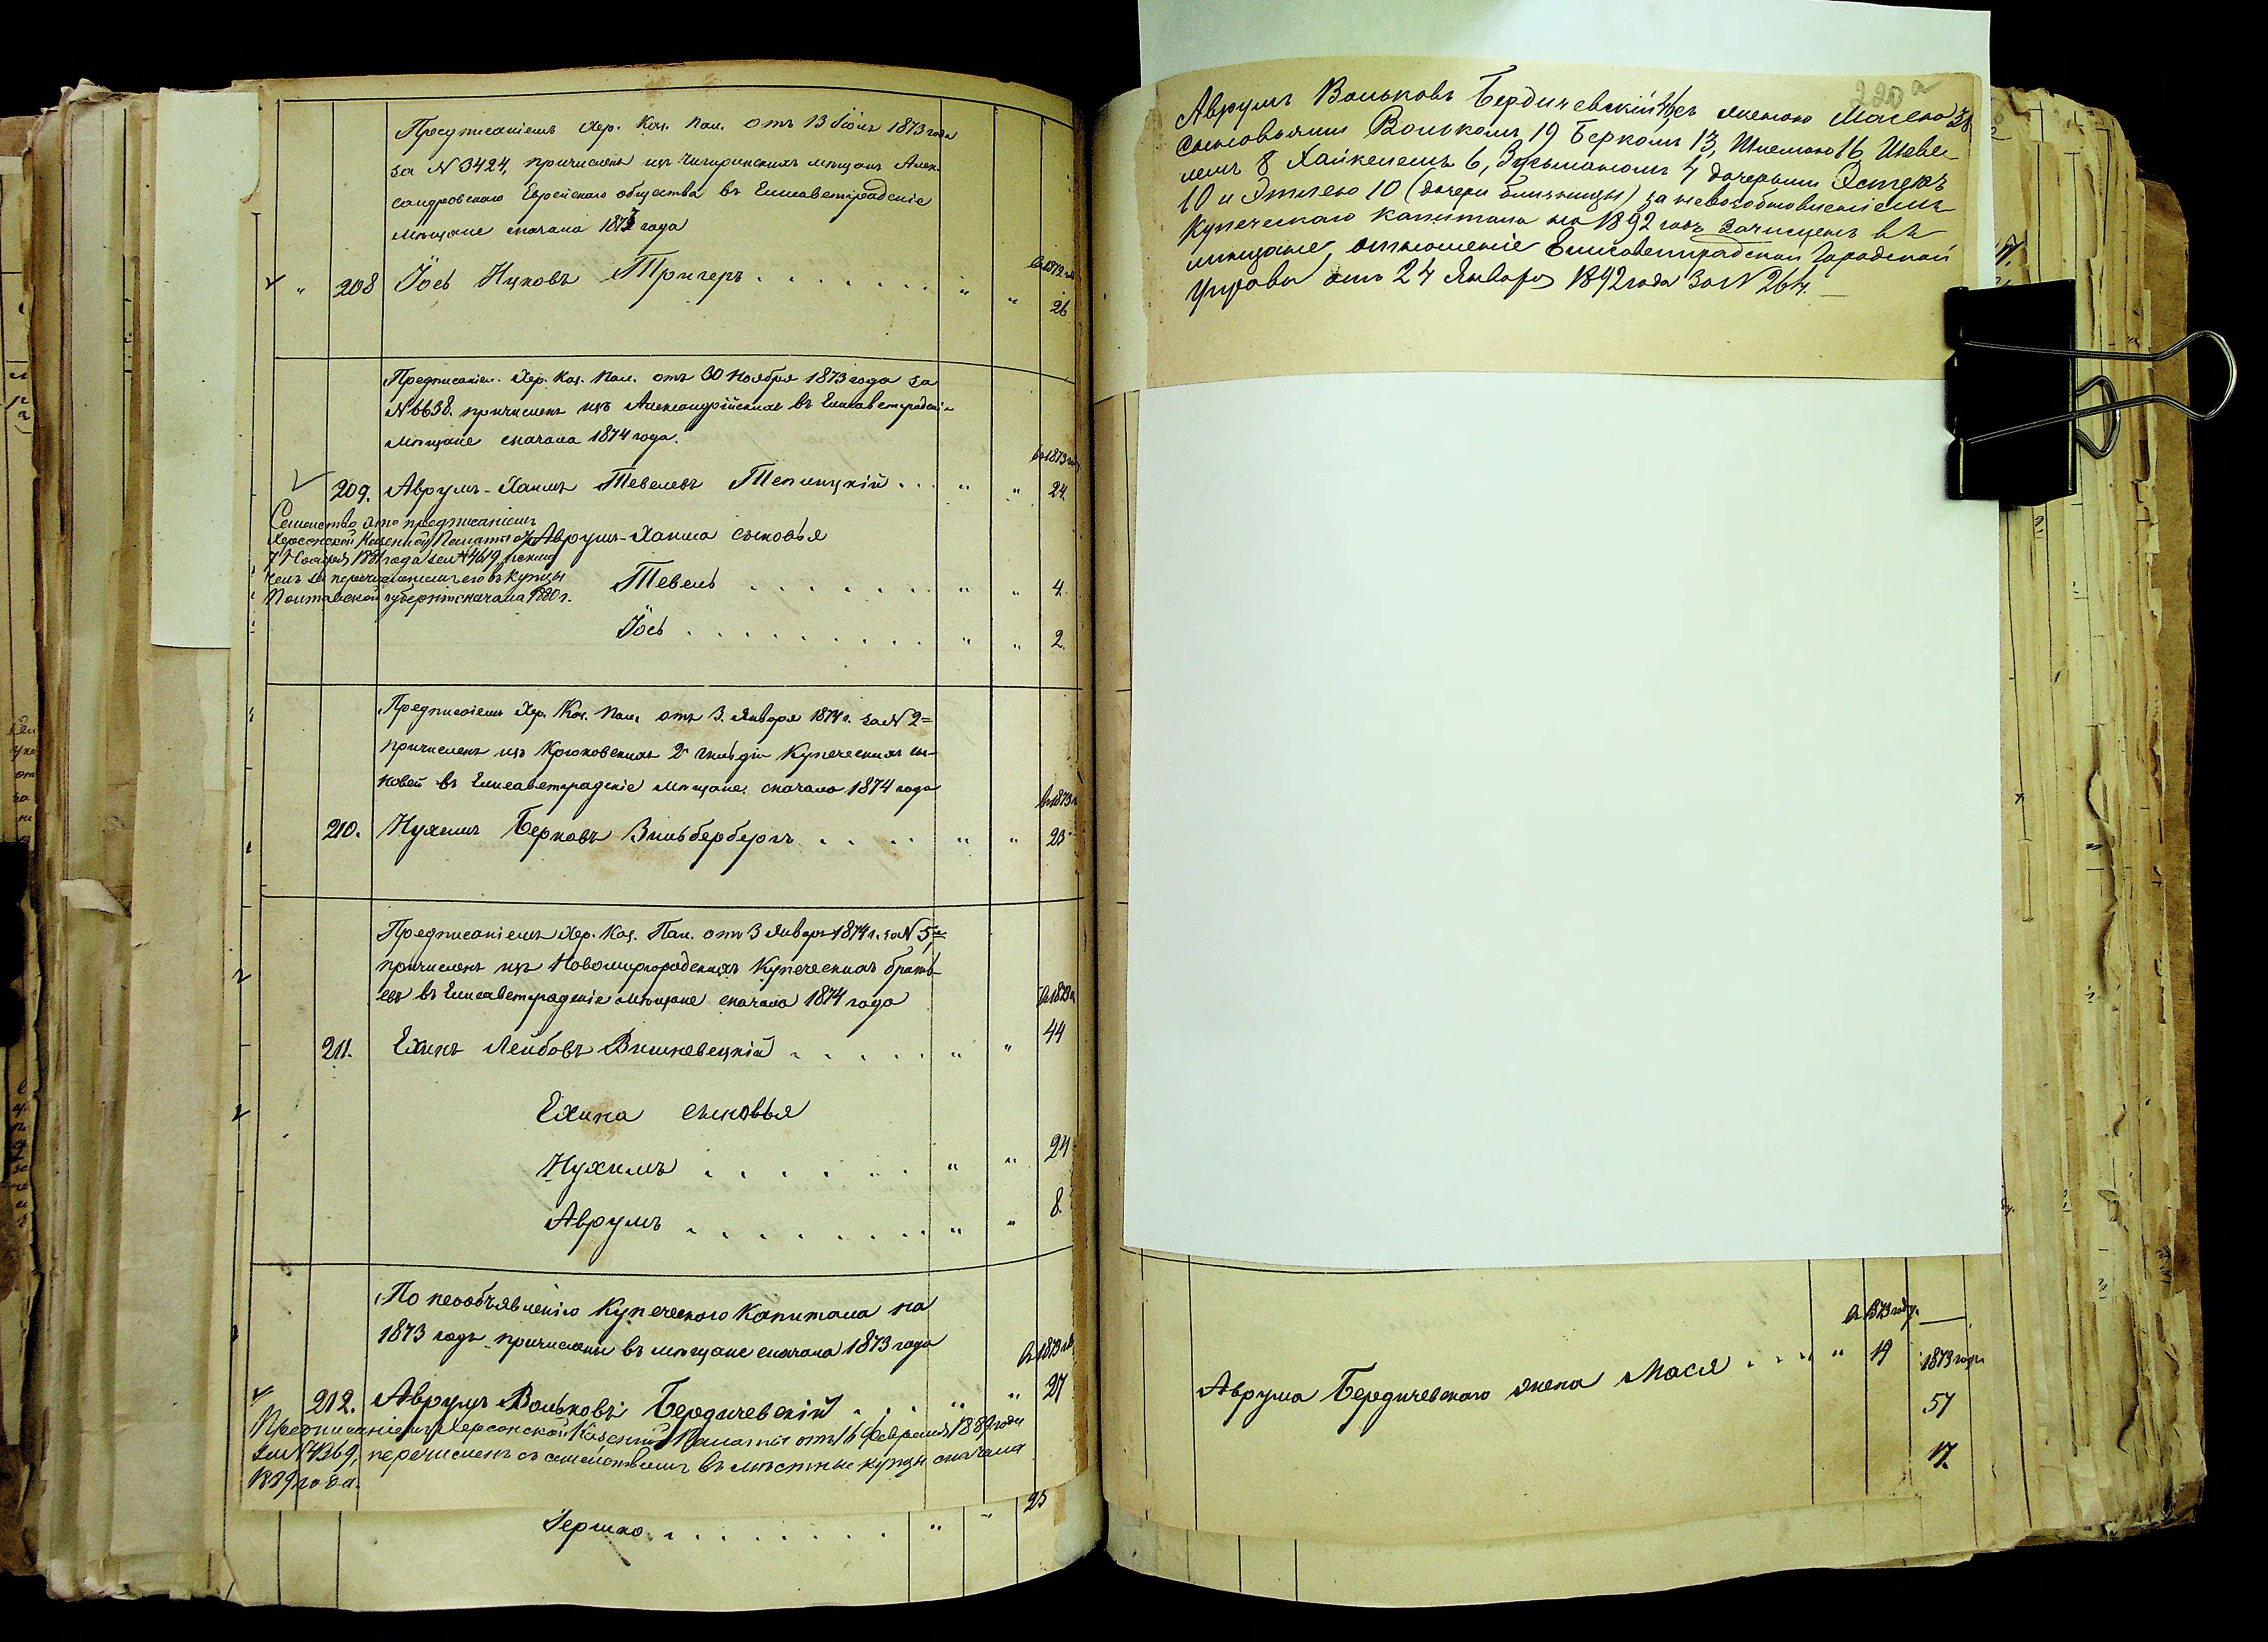 Предписаніемъ Хер. Каз. Пал. отъ 13 Іюня 1873 года
за N 3424, причисленъ изъ Чигиринскихъ мѣщанъ Алек-
сандровскаго Еврейскаго общества въ Елисаветградскіе
мѣщане сначала 1873 года
въ 1872 год
208 Іось Ицковъ Тригеръ . . . . . . . " " 26
Предписаніем. Хер. Каз. Пал. отъ 30 Ноября 1873 года за
N 6638. причисленъ изъ Александрійскихъ въ Елисаветградскіе
мѣщане сначала 1874 года.
въ 1873 году
209. Аврумъ-Хаимъ Тевелевъ Теплицкій . . . " " 24.
Семейство это предписаніемъ
Херсонской Казенной Палаты отъ
7 Ноября 1881 года за N 4619 исклю
ченъ за перечисленіемъ его въ купцы
Полтавской губерніи сначала 1880 г.
Аврумъ-Хаима сыновья
Тевель . . . . . . . " " 4.
Іось . . . . . . . . . " " 2.
Предписаніемъ Хер. Каз. Пал. отъ 3. Января 1874 г. за N 2
причисленъ изъ Крюковскихъ 2й гильдіи Купеческихъ сы-
новей въ Елисаветградскіе мѣщане сначала 1874 года
въ 1873 г.
210. Нухимъ Берковъ Зильбербергъ . . . . . " " 23
Предписаніемъ Хер. Каз. Пал. отъ 3 Января 1874 г. за N 5
причисленъ изъ Новомиргородскихъ Купеческихъ брать-
евъ въ Елисаветградскіе мѣщане сначала 1874 года
въ 1873 г.
211. Ехилъ Лейбовъ Вишневецкій . . . . . " " 44
Ехила сыновья
Нухимъ . . . . . . . " " 24
Аврумъ . . . . . . . . " " 8.
По необъявленію Купеческаго Капитала на
1873 годъ причислены въ мѣщане сначала 1873 года
въ 1873 год
212. Аврумъ Вольковъ Бердичевскій . . . " " 27
Предписаніемъ Херсонской Казенной Палаты отъ 16 Февраля 1889 года
за N 1369, перечисленъ съ семействомъ въ мѣстные купцы сначала
1889 года.
Гершко . . . . . . . . " " 25
220 а
Аврумъ Вольковъ Бердичевскій съ женою Масею 38
сыновьями Волькомъ 19 Беркомъ 13, Шлемою 16
лемъ 8 Хайкелемъ 6, Зусьманомъ 4 дочерьми Эстеръ
10 и Этлею 10 (дочери близницы) за невозобновленіемъ
Купеческаго капитала на 1892 годъ зачисленъ въ
мѣщане отношеніе Елисаветградской Городской
Управы отъ 24 Января 1892 года за N 264.
въ 1873 году
Аврума Бердичевскаго жена Мася . . . " " 19
1873 года
57
17.